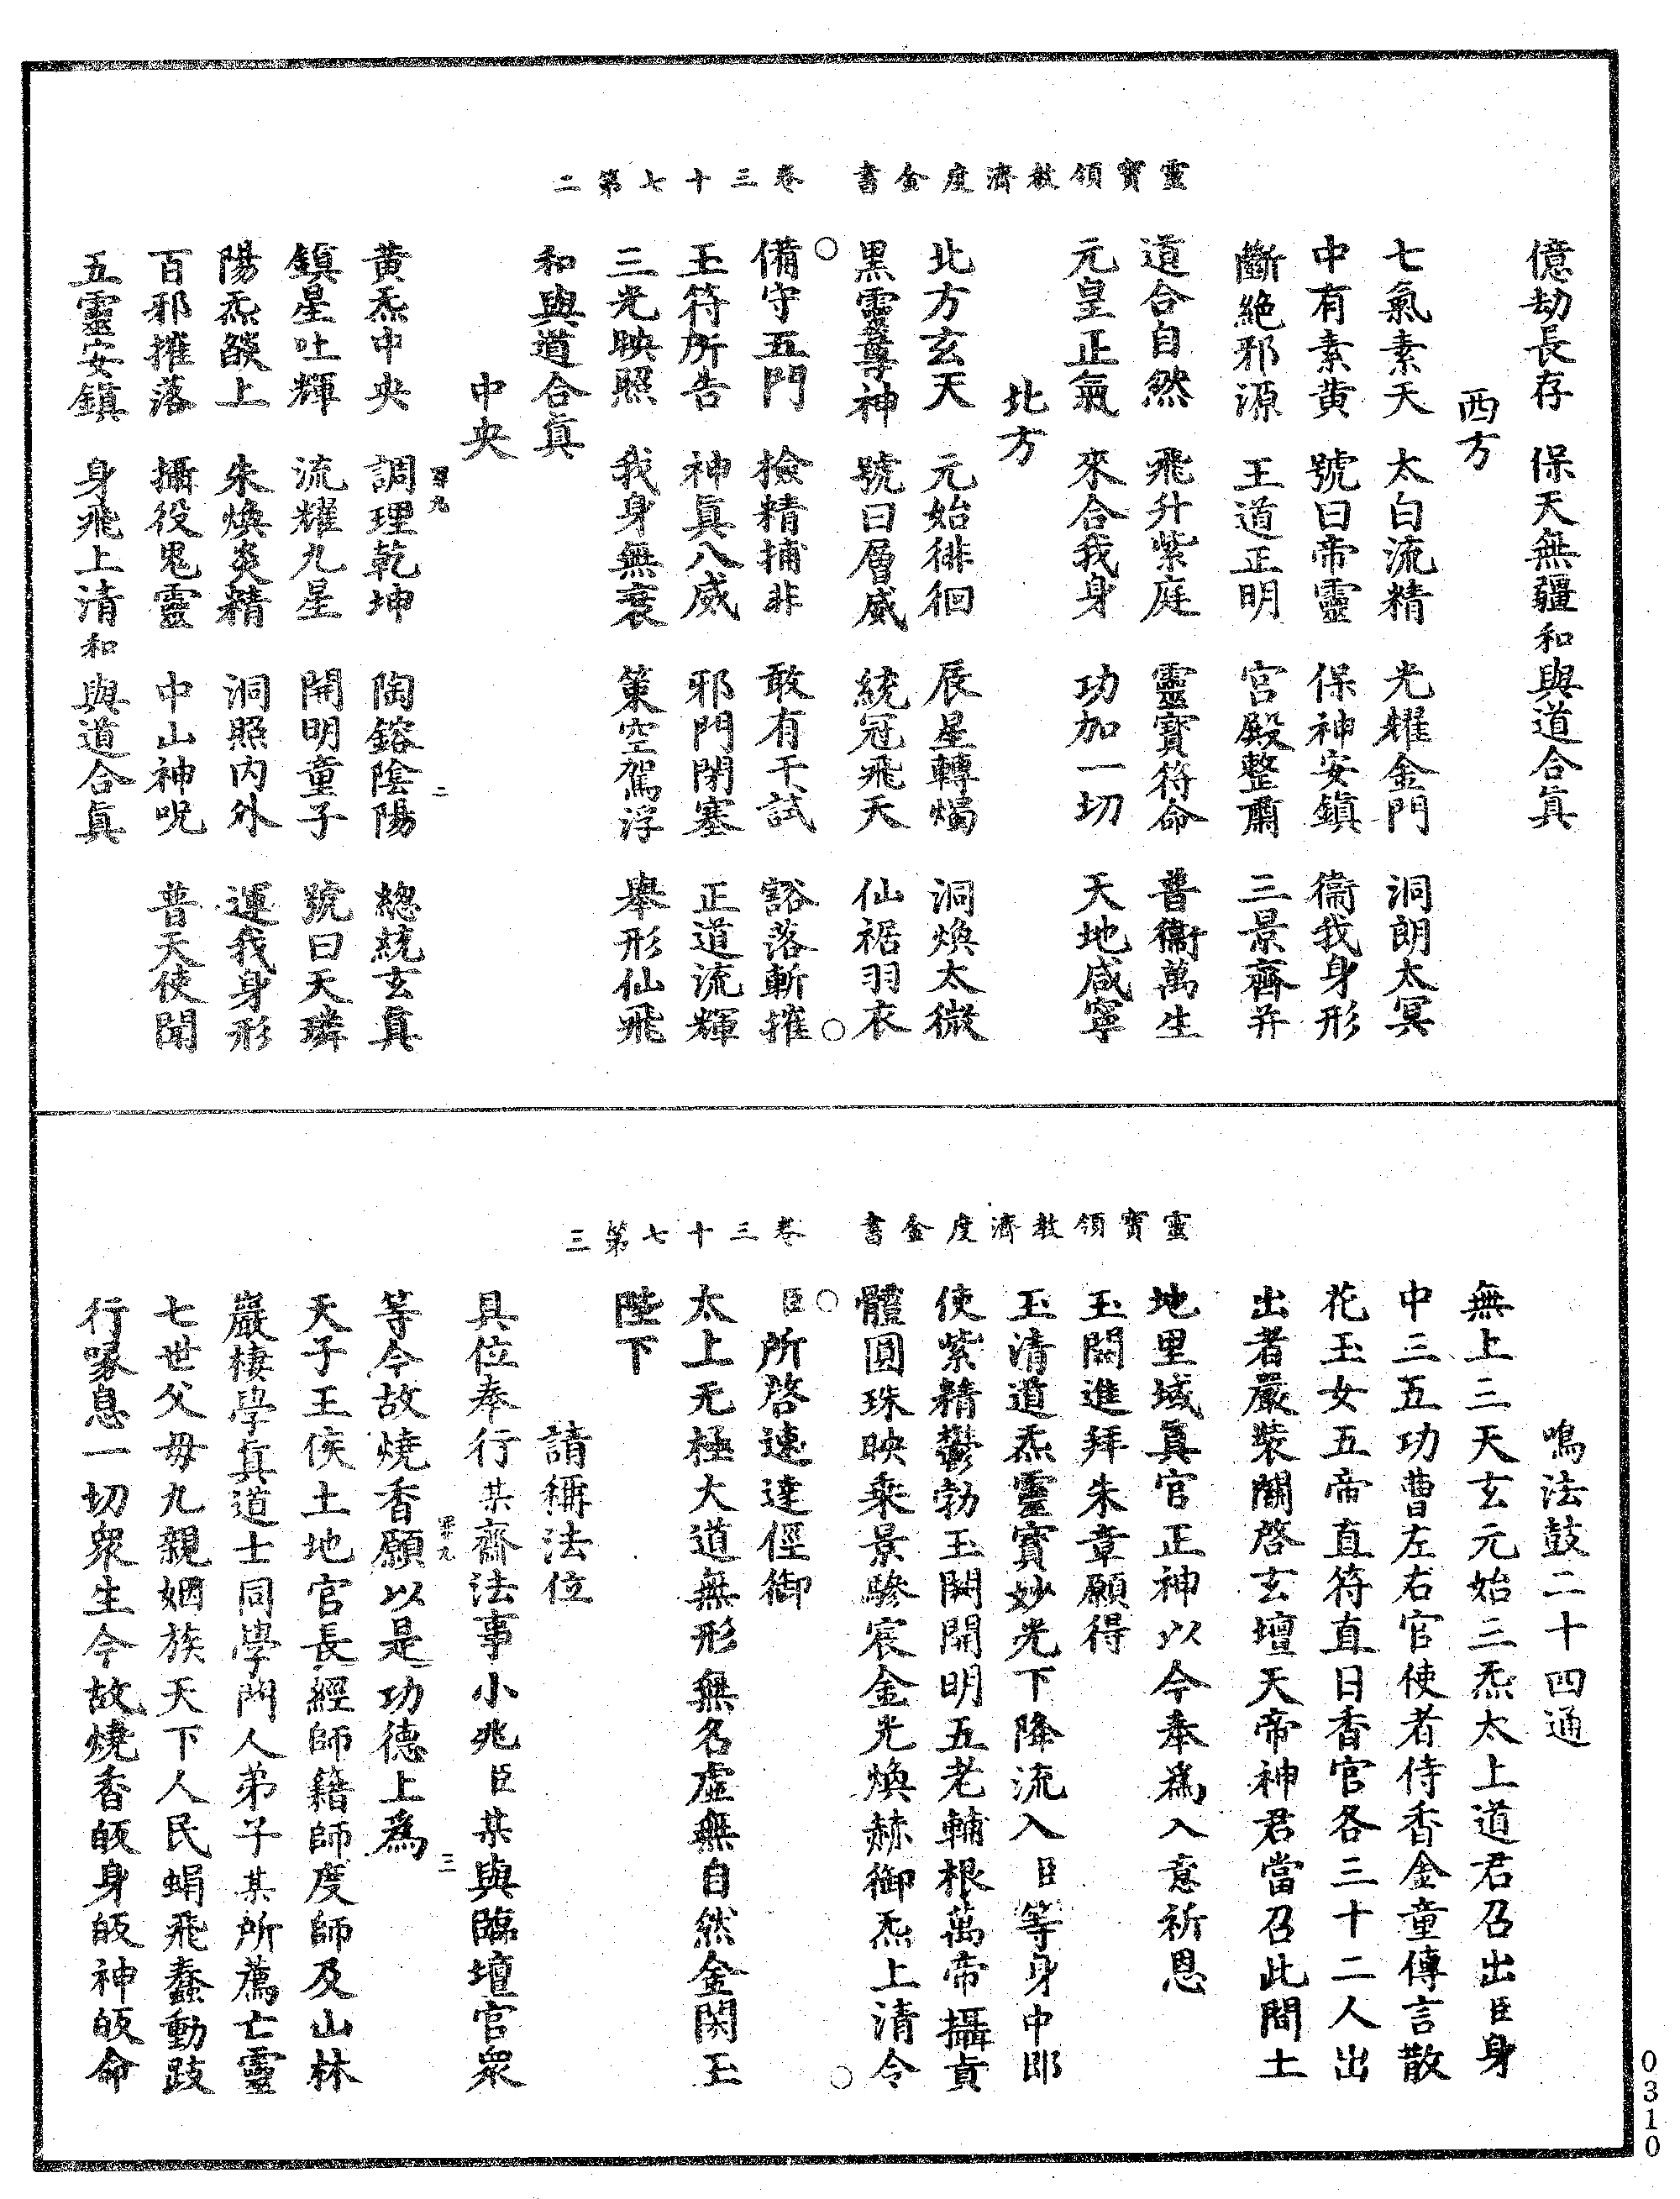 靈寶領教濟度金書　卷三十七第二
億劫長存　保天無疆和與道合真
西方
七氣素天　太白流精　光耀金門　洞朗太冥
中有素黃　號曰帝靈　保神安鎮　衛我身形
斷絕邪源　王道正明　宮殿整肅　三景齊并
道合自然　飛升紫庭　靈寶符命　普衛萬生
元皇正氣　來合我身　功加一切　天地咸寧
北方
北方玄天　元始徘徊　辰星轉燭　洞煥太微
黑靈尊神　號曰層威　統冠飛天　仙裾羽衣
備守五門　撿精捕非　敢有干試　豁落斬摧
玉符所告　神真八威　邪門閉塞　正道流輝
三光映照　我身無衰　策空駕浮　舉形仙飛
和與道合真
中央
黃炁中央　調理乾坤　陶鎔陰陽　總統玄真
鎮星吐輝　流耀九星　開明童子　號曰天璘
陽炁燄上　朱煥炎精　洞照內外　運我身形
百邪摧落　攝役鬼靈　中山神呪　普天使聞
五靈安鎮　身飛上清和與道合真
靈寶領教濟度金書　卷三十七第三
鳴法鼓二十四通
無上三天玄元始三炁太上道君召出臣身
中三五功曹左右官使者侍香金童傳言散
花玉女五帝直符直日香官各三十二人出
出者嚴裝關啓玄壇天帝神君當召此間土
地里域真官正神以今奉為入意祈恩
玉闕進拜朱章願得
玉清道炁靈寶妙光下降流入臣等身中即
使紫精鬱勃玉闕開明五老輔根萬帝攝貞
體圓珠映乘景驂宸金光煥赫御炁上清令
臣所啓速達徑御
太上无極大道無形無名虛無自然金闕玉
陛下
請稱法位
具位奉行某齋法事小兆臣某與臨壇官衆
等今故燒香願以是功德上為
天子王侯土地官長經師籍師度師及山林
巖棲學真道士同學門人弟子某所薦亡靈
七世父母九親姻族天下人民蜎飛蠢動跂
行喙息一切衆生今故燒香皈身皈神皈命
0310